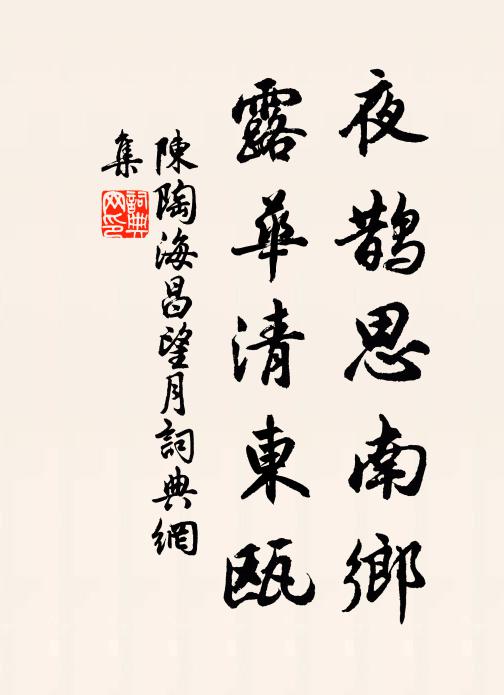 夜鹊思南鄉
露華清東瓯
陳陶海昌望月詞典網
集
詞典
网印